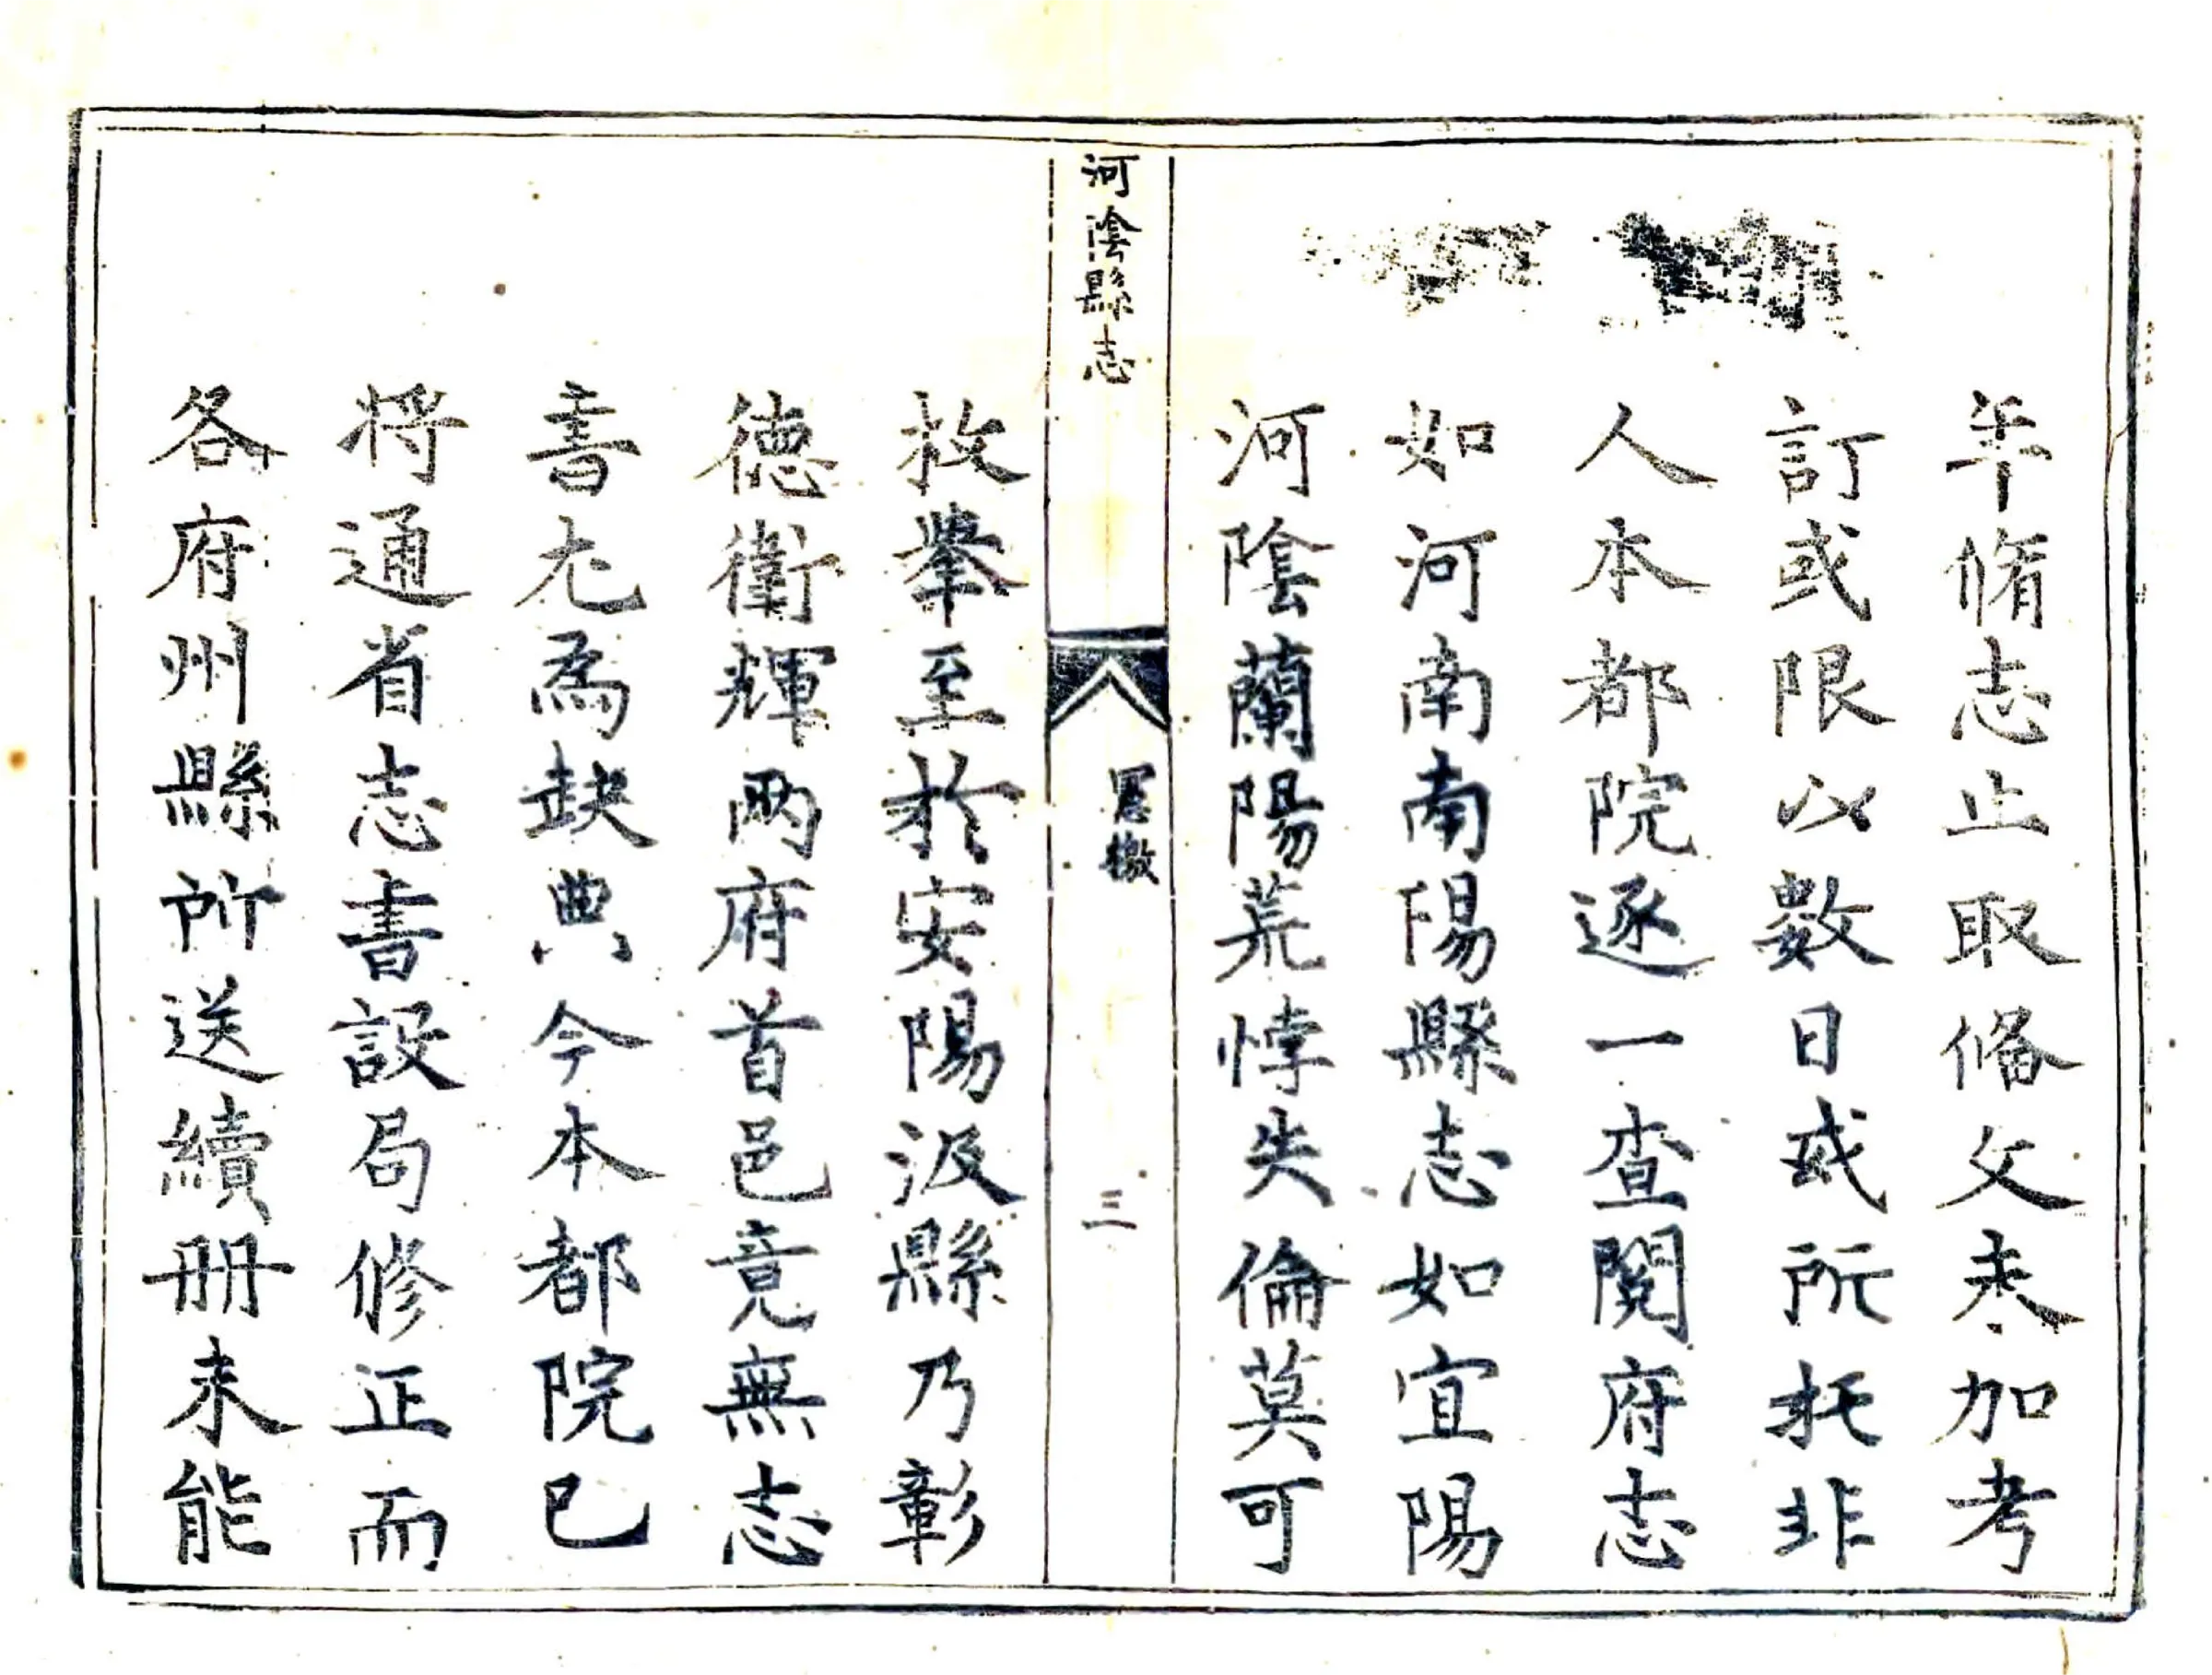 年脩志止取俻文未加考
訂或限以數日或所托非
人本都院逐一查閱府志
如河南南陽縣志如宜陽
河陰蘭陽荒悖失倫莫可
河陰縣志
憲檄
三
枚舉至於安陽汲縣乃彰
德衛輝兩府首邑竟無志
書尤為缺典今本都院已
將通省志書設局修正而
各府州縣所送續册未能